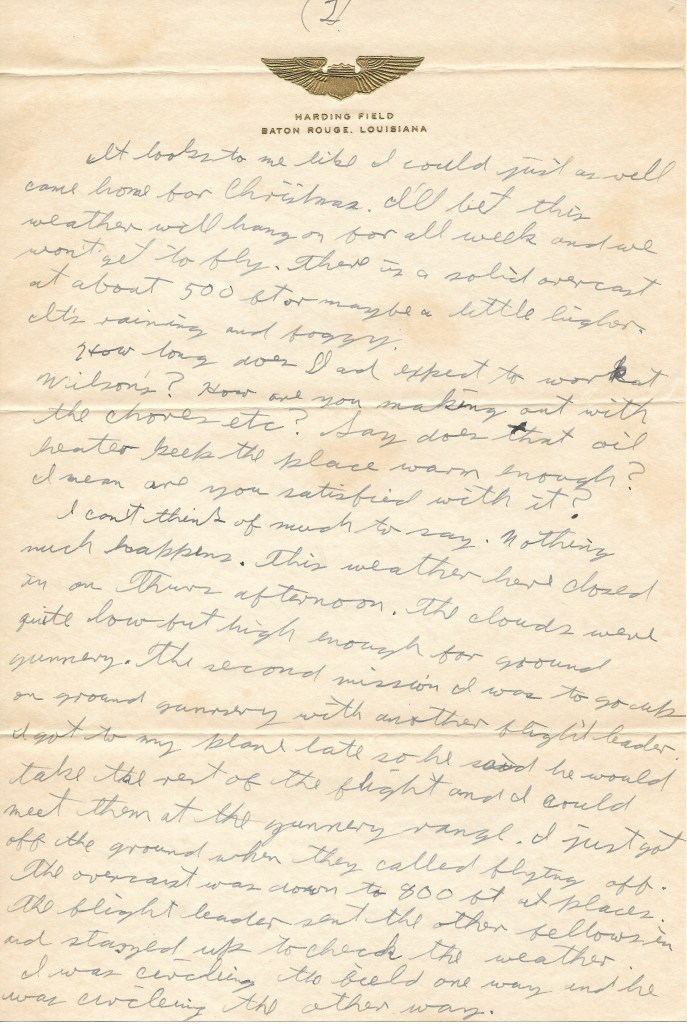 (2)
HARDING FIELD
BATON ROUGE, LOUISIANA
It looks to me like I could just as well
come home for Christmas. I'll bet this
weather will hang on for all week and we
won't get to fly. There is a solid overcast
at about 500 ft or maybe a little higher.
It's raining and foggy.
How long does Dad expect to work at
Wilson's? How are you making out with
the chores etc? Say does that oil
heater keep the place warm enough?
I mean are you satisfied with it?
I can't think of much to say. Nothing
much happens. This weather here closed
in on Thurs afternoon. The clouds were
quite low but high enough for ground
gunnery. The second mission I was to go up
on ground gunnery with another flight leader.
I got to my plane late so he said he would
take the rest of the flight and I could
meet them at the gunnery range. I just got
off the ground when they called flying off.
The overcast was down to 800 ft at places.
The flight leader sent the other fellows in
and stayed up to check the weather.
I was circling the field one way and he
was circleing the other way.